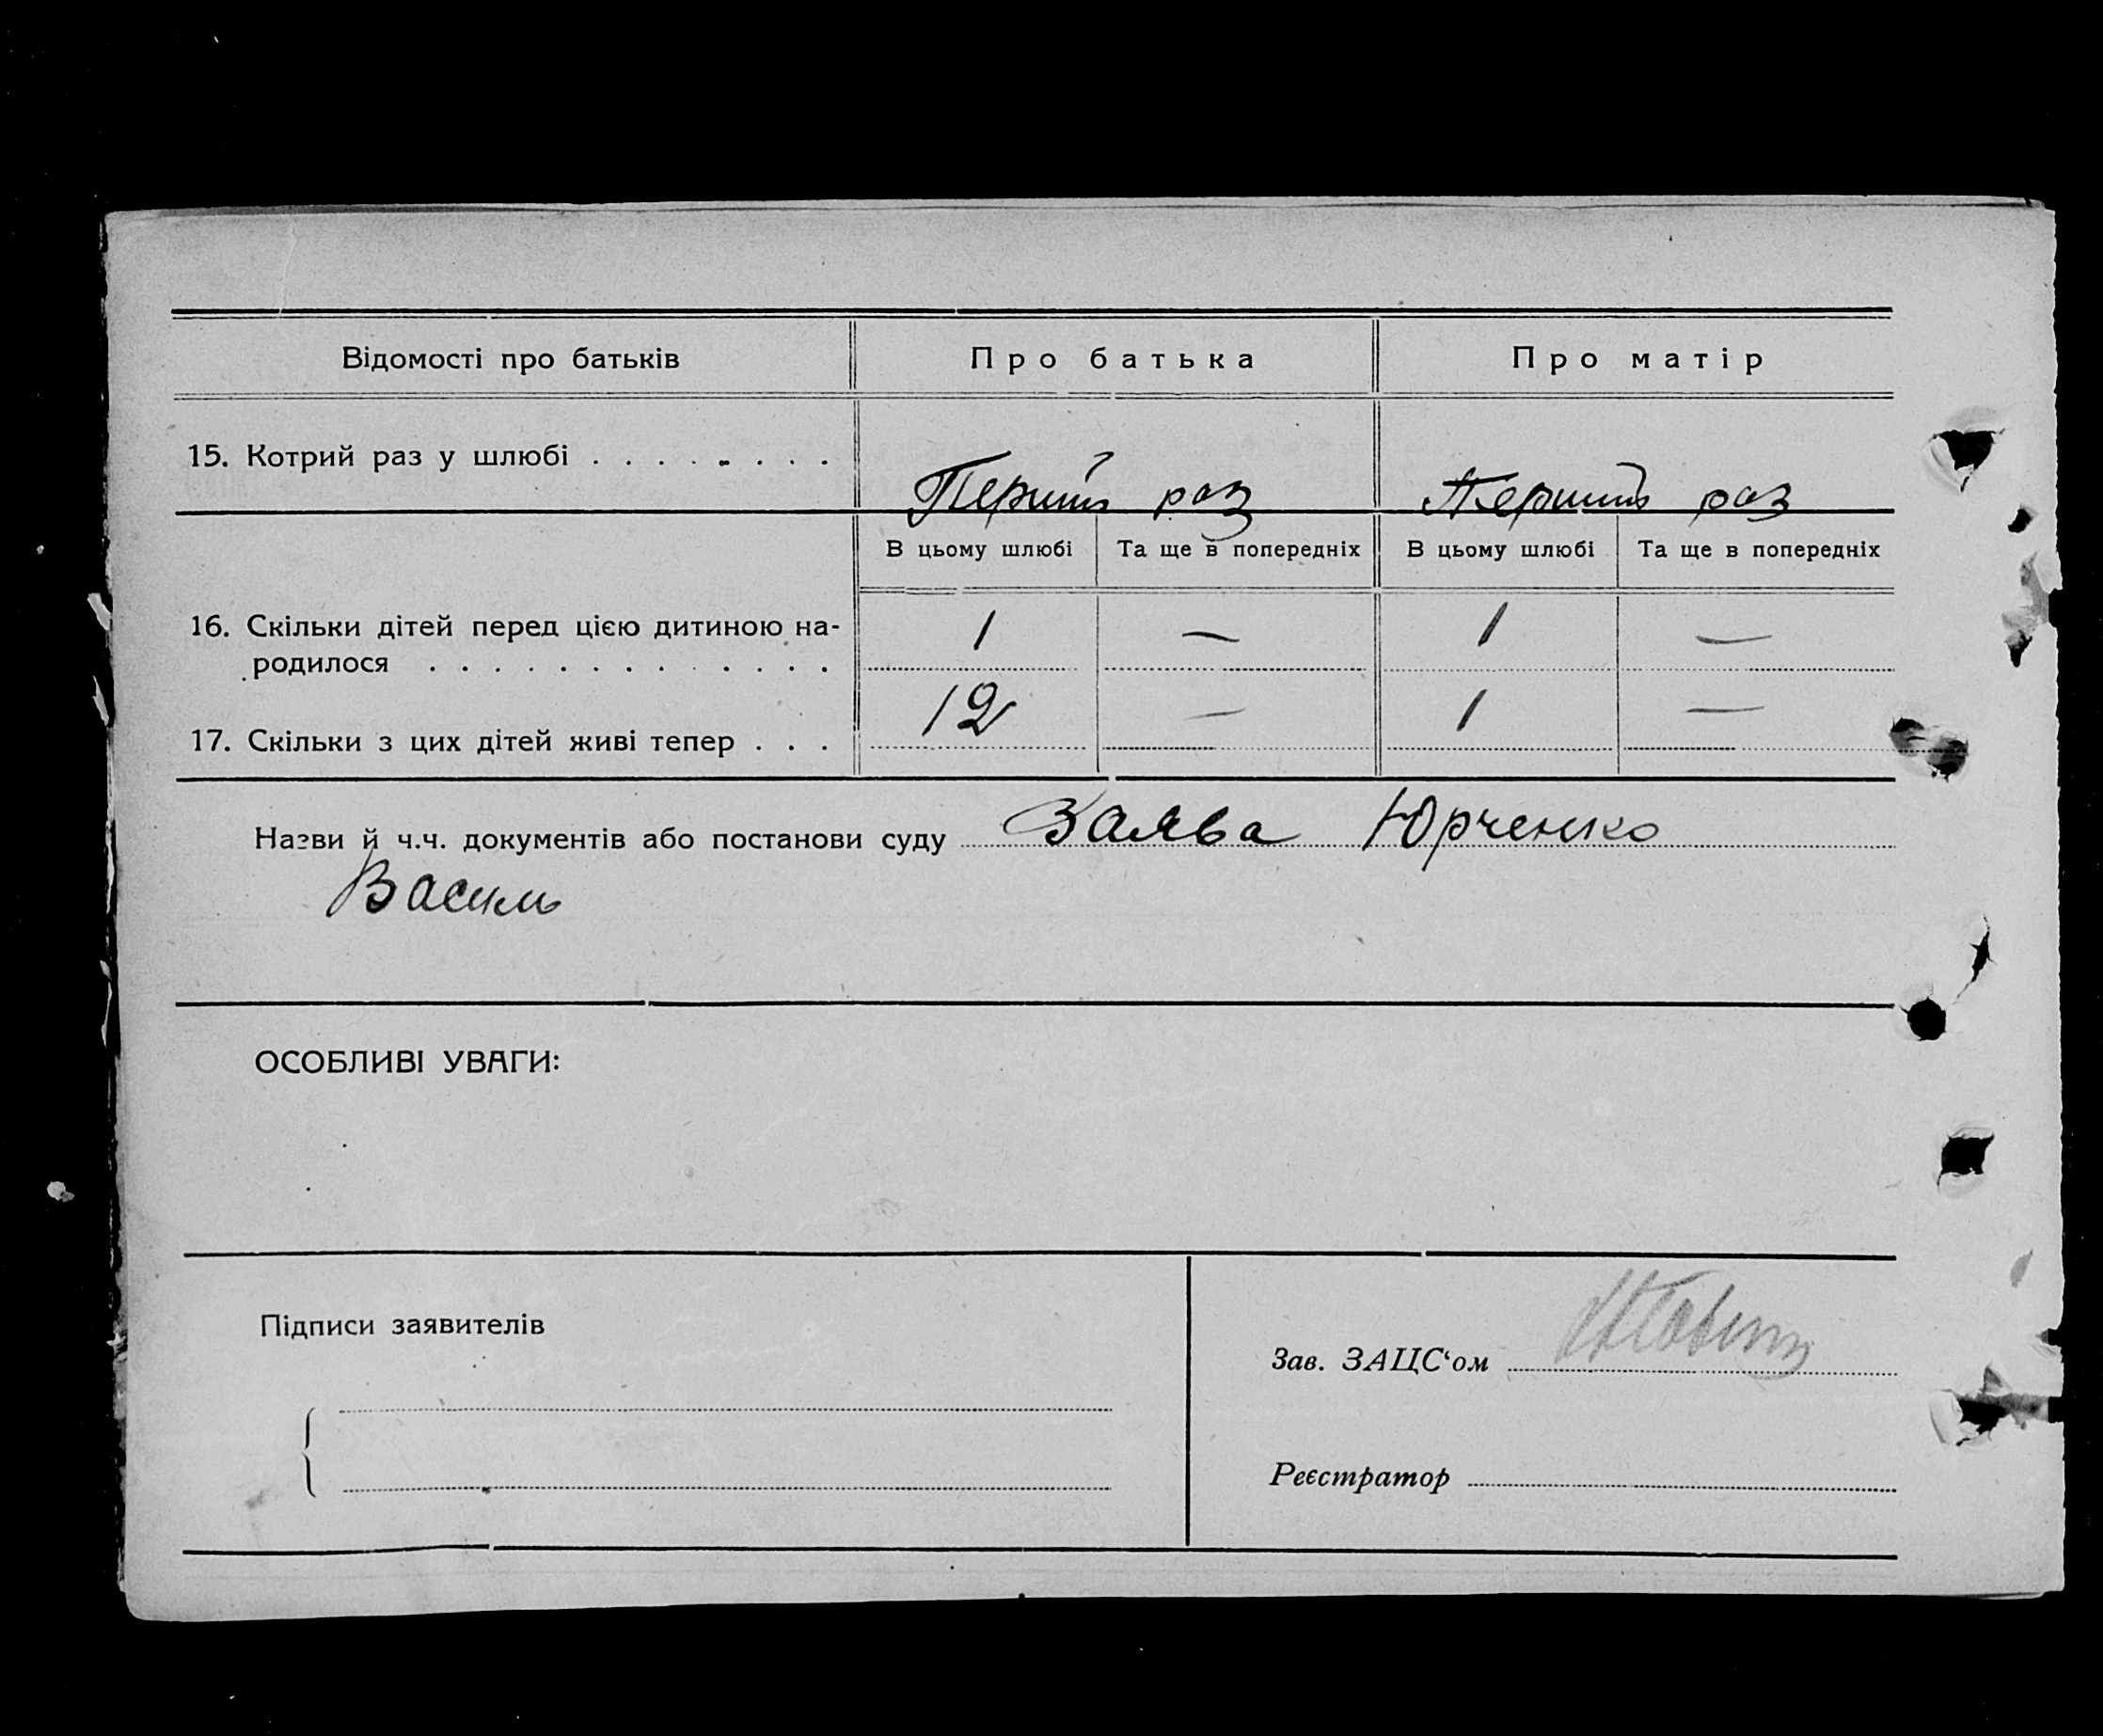 Відомості про батьків Про батька Про матір
15. Котрий раз у шлюбі . . . . . . . . Перший раз Перший раз
В цьому шлюбі Та ще в попередніх В цьому шлюбі Та ще в попередніх
16. Скільки дітей перед цією дитиною на- 1 — 1 —
родилося . . . . . . . . . . . . .
17. Скільки з цих дітей живі тепер . . . 12 — 1 —
Назви й ч.ч. документів або постанови суду Заява Юрченко
Василь
ОСОБЛИВІ УВАГИ:
Підписи заявителів
Зав. ЗАЦС‘ом
Реєстратор